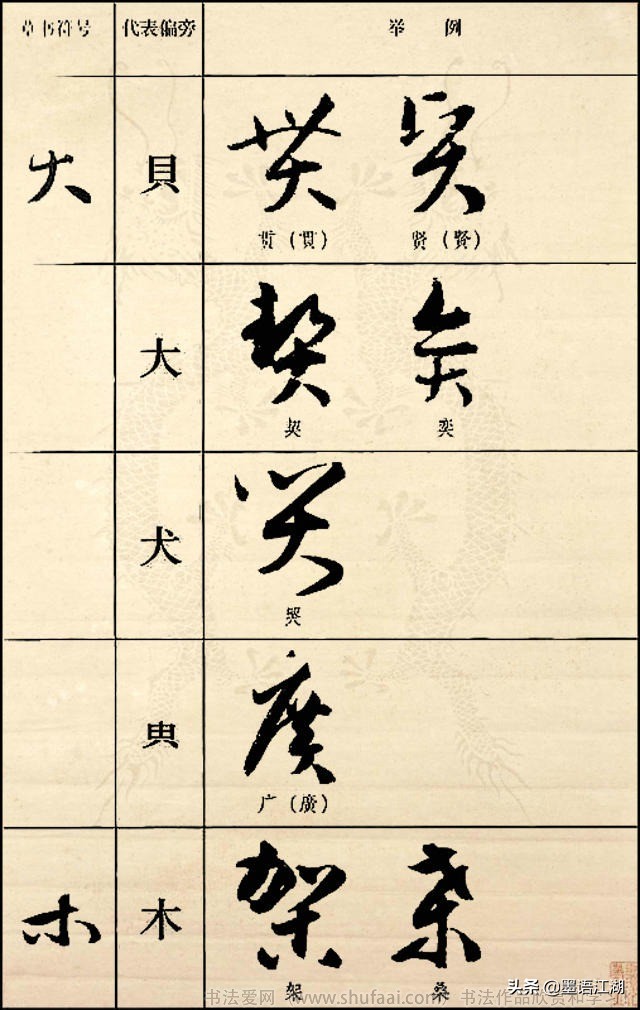 草书符号 代表偏旁 举例
大 貝
贯(貫) 贤(賢)
大
契 奕
犬
哭
广(廣)
木 木
架 桑
书法爱网 (www.shufaai.com) 书法作品欣赏和学习
头条 @墨语江湖